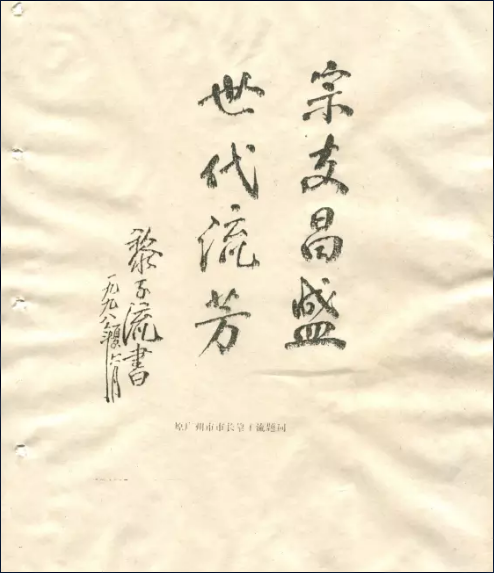 宗支昌盛
世代流芳
黎子流書
一九九八六月
原广州市市长黎子流题词